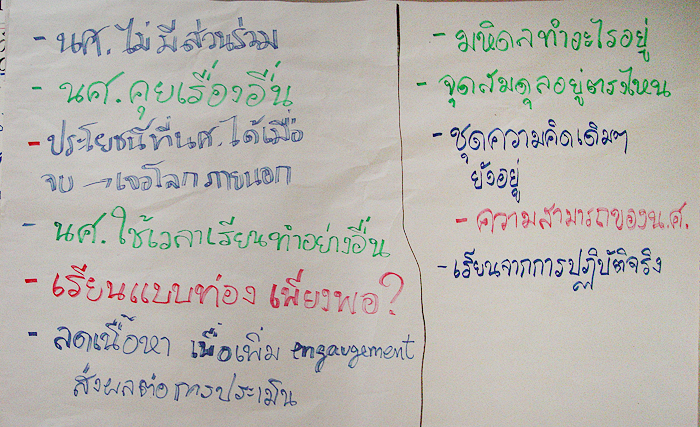 - นศ. ไม่มีส่วนร่วม
- นศ. คุยเรื่องอื่น
- ประโยชน์ที่นศ. ได้เมื่อ
จบ → เจอโลกภายนอก
- นศ. ใช้เวลาเรียนทำอย่างอื่น
- เรียนแบบท่อง เพียงพอ?
- ลดเนื้อหา เพื่อเพิ่ม engaugement
ส่งผลต่อการประเมิน
- มหิดลทำอะไรอยู่
- จุดสมดุลอยู่ตรงไหน
- ชุดความคิดเดิมๆ
ยังอยู่
- ความสามารถของน.ศ.
- เรียนจากการปฏิบัติจริง